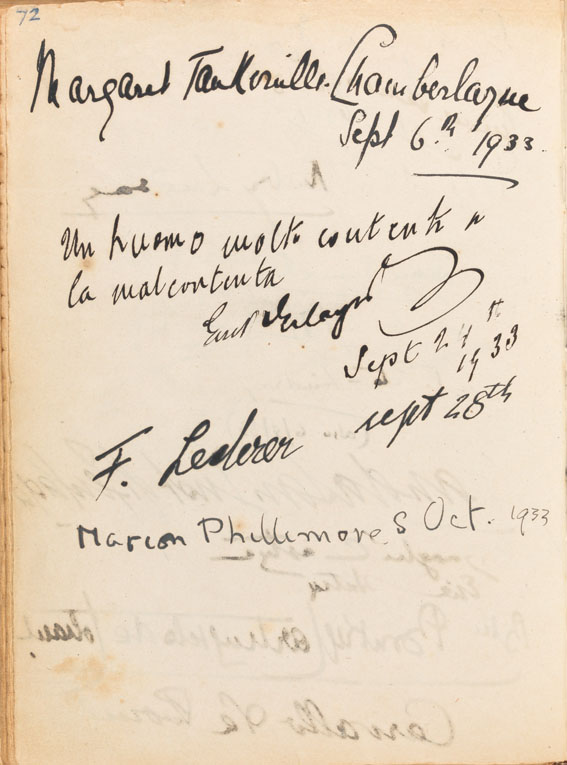 72
Margaret Tankerville-Chamberlayne
Sept 6.th 1933.
Un huomo molto contento a
la malcontenta
Sept 24th
1933
F. Lederer sept 28th
Marion Phillimore 8 Oct. 1933